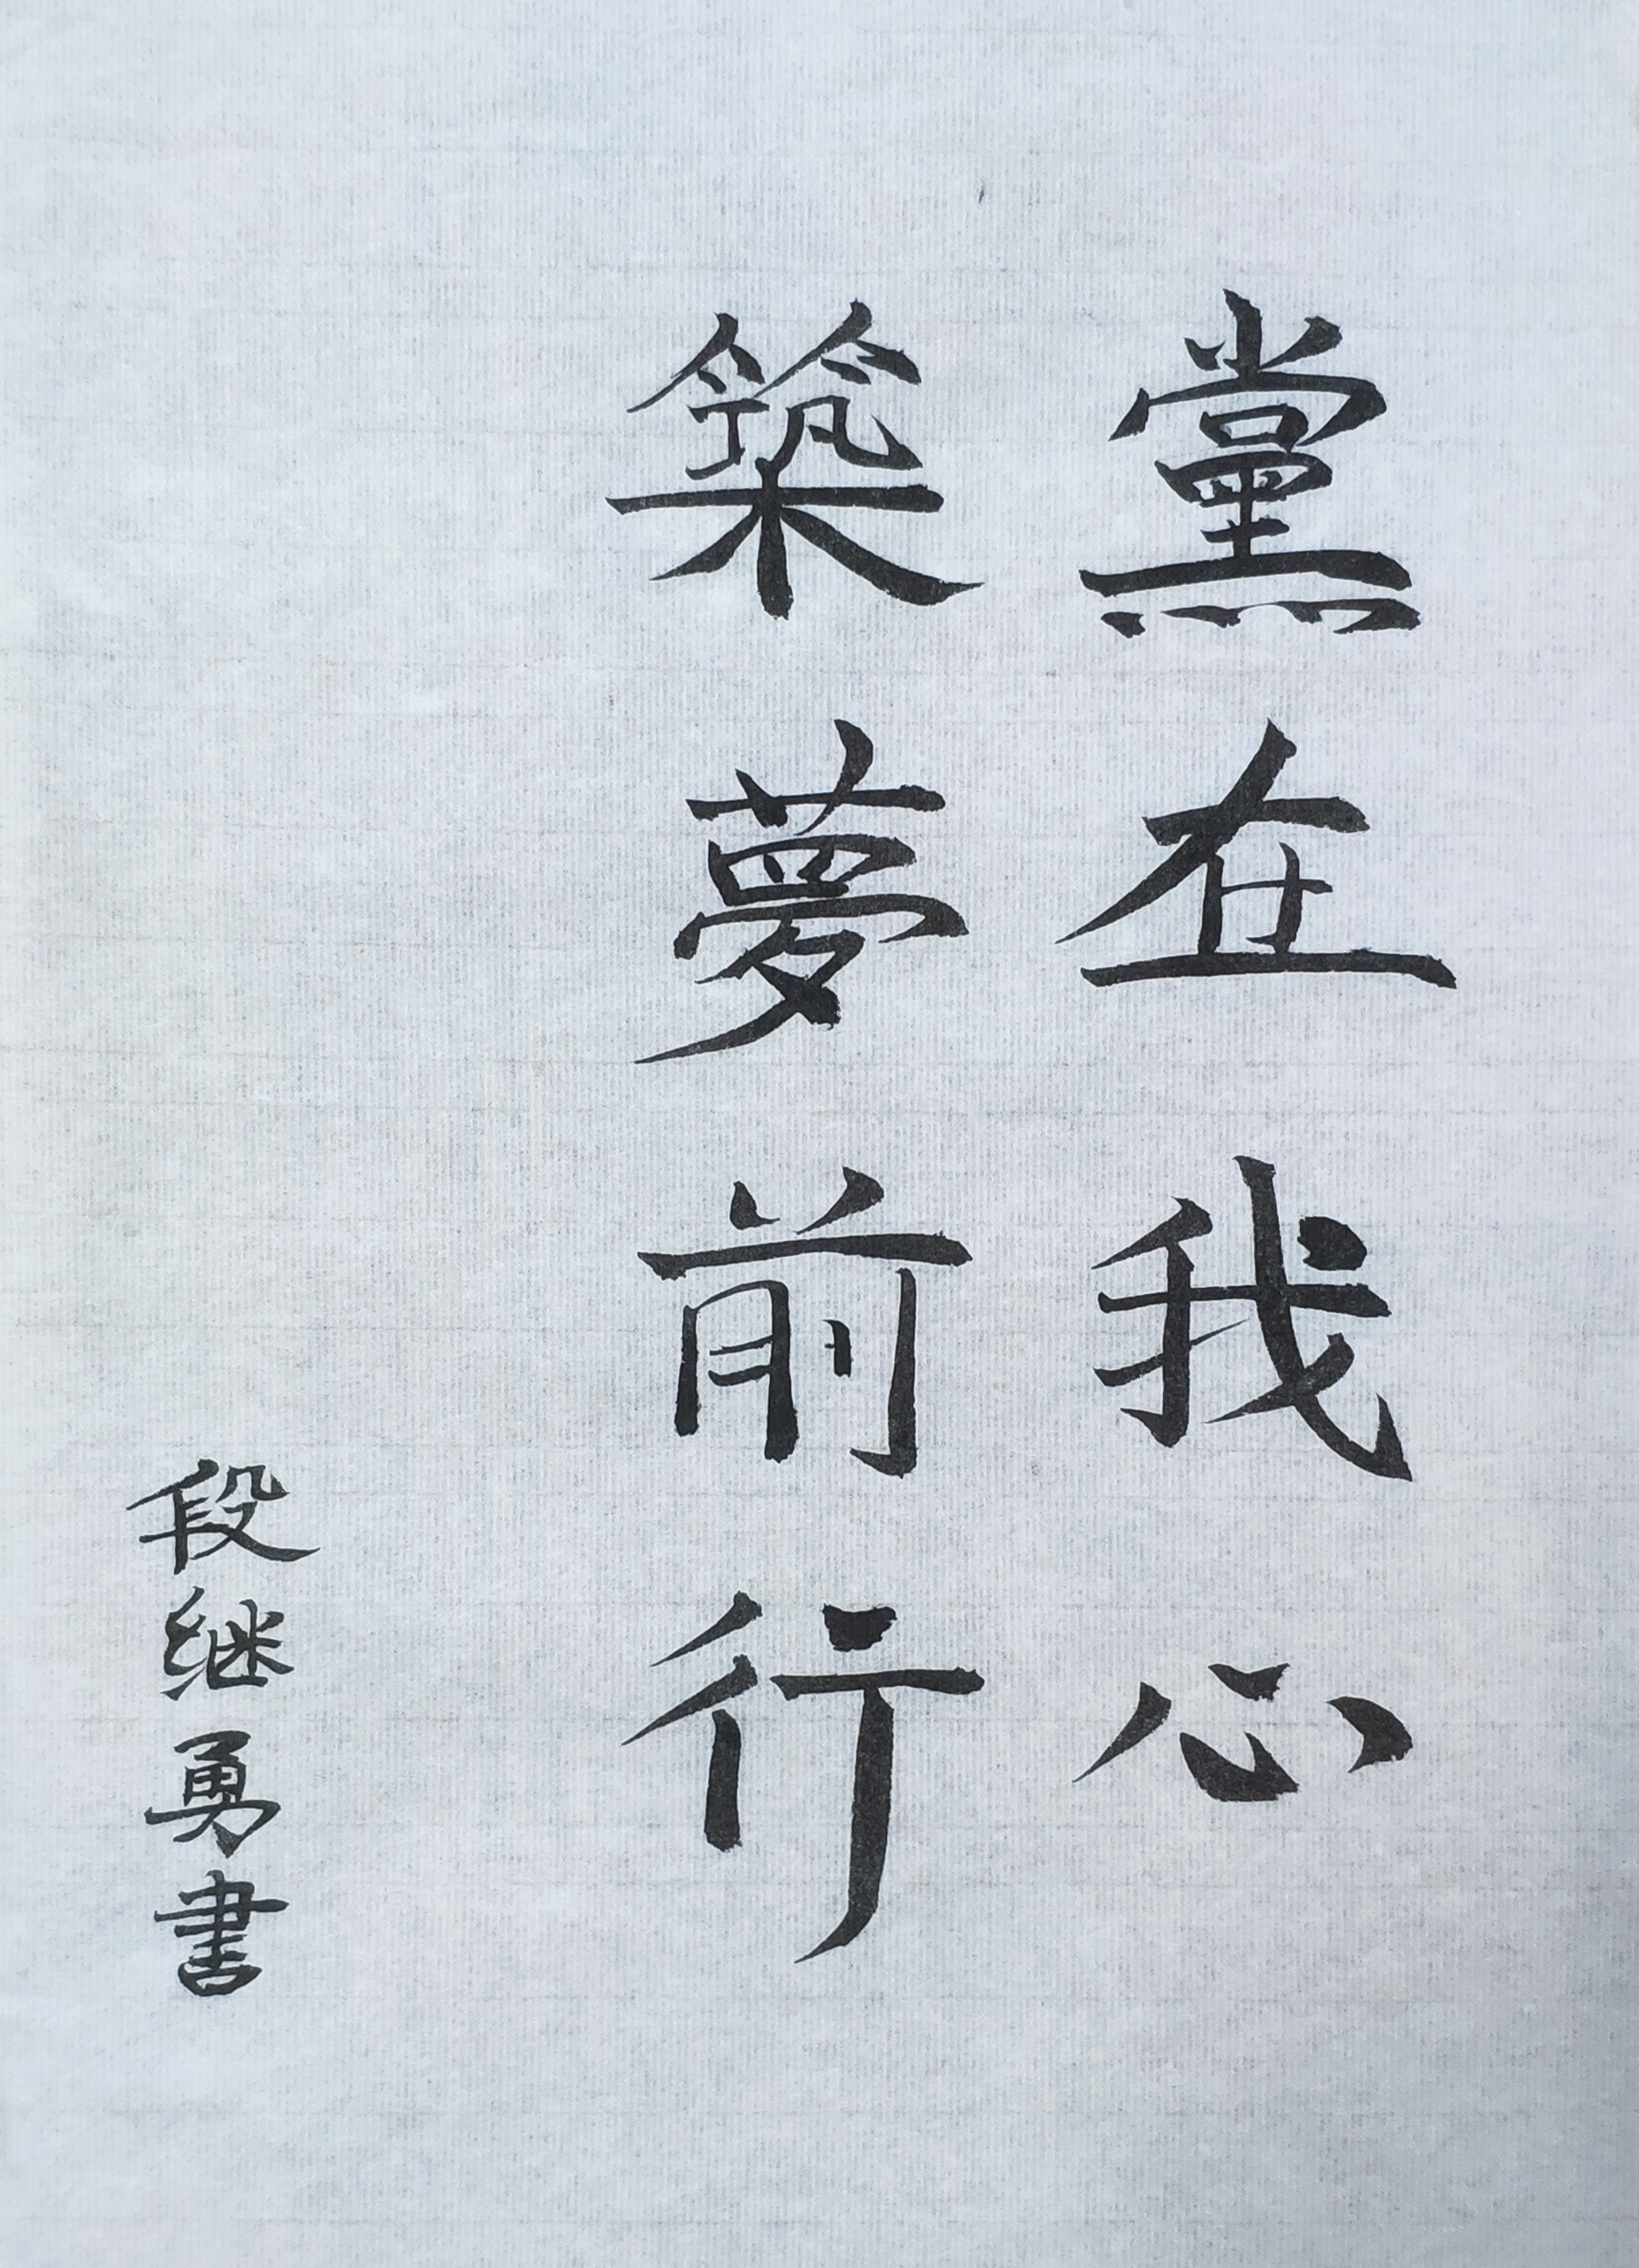 黨在我心
築夢前行
段继勇書